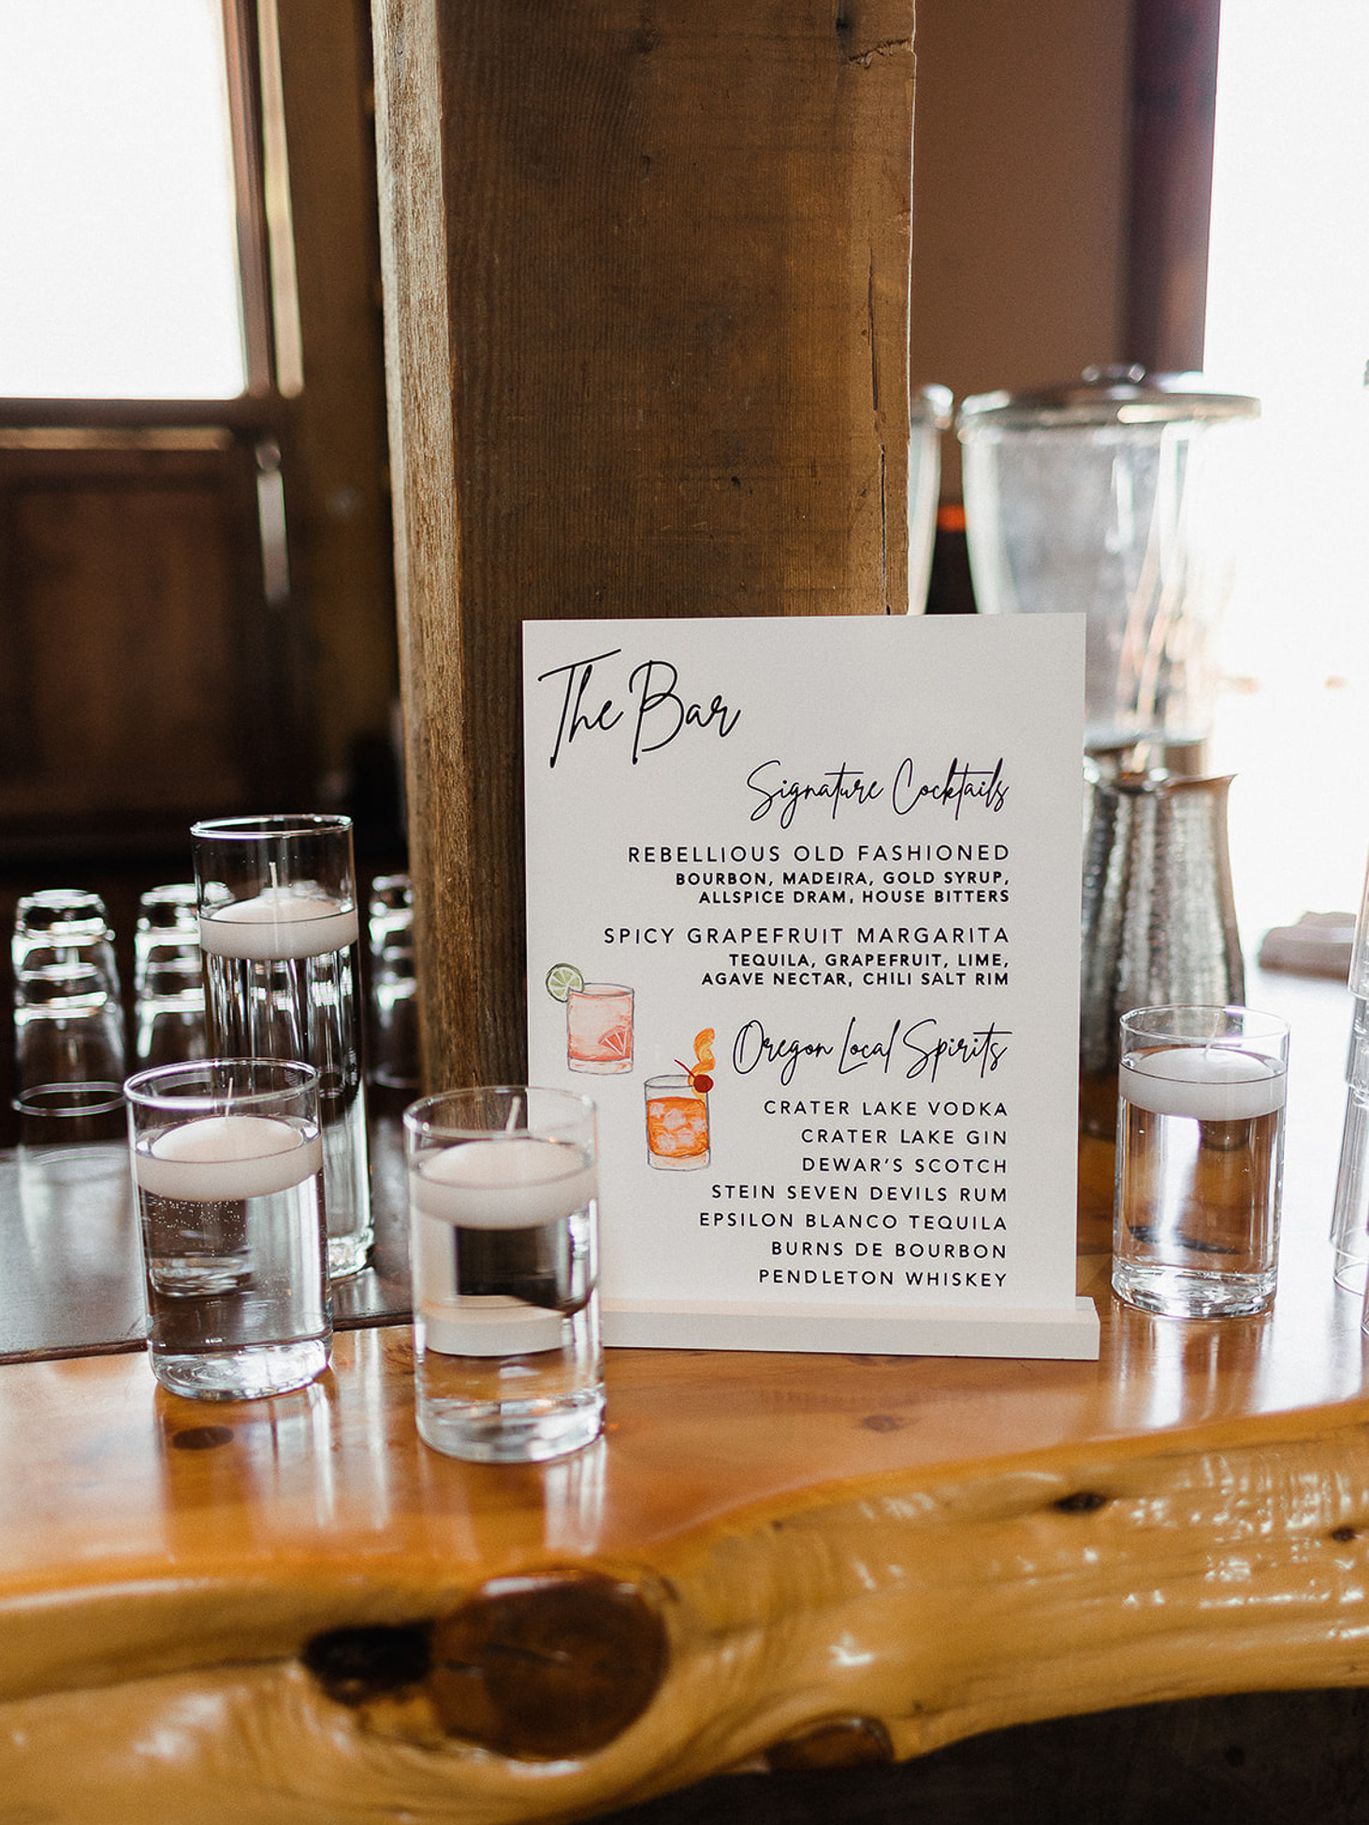 The Bar
Signature Cocktails
REBELLIOUS OLD FASHIONED
BOURBON, MADEIRA, GOLD SYRUP,
ALLSPICE DRAM, HOUSE BITTERS
SPICY GRAPEFRUIT MARGARITA
TEQUILA, GRAPEFRUIT, LIME,
AGAVE NECTAR, CHILI SALT RIM
Oregon Local Spirits
CRATER LAKE VODKA
CRATER LAKE GIN
DEWAR'S SCOTCH
STEIN SEVEN DEVILS RUM
EPSILON BLANCO TEQUILA
BURNS DE BOURBON
PENDLETON WHISKEY